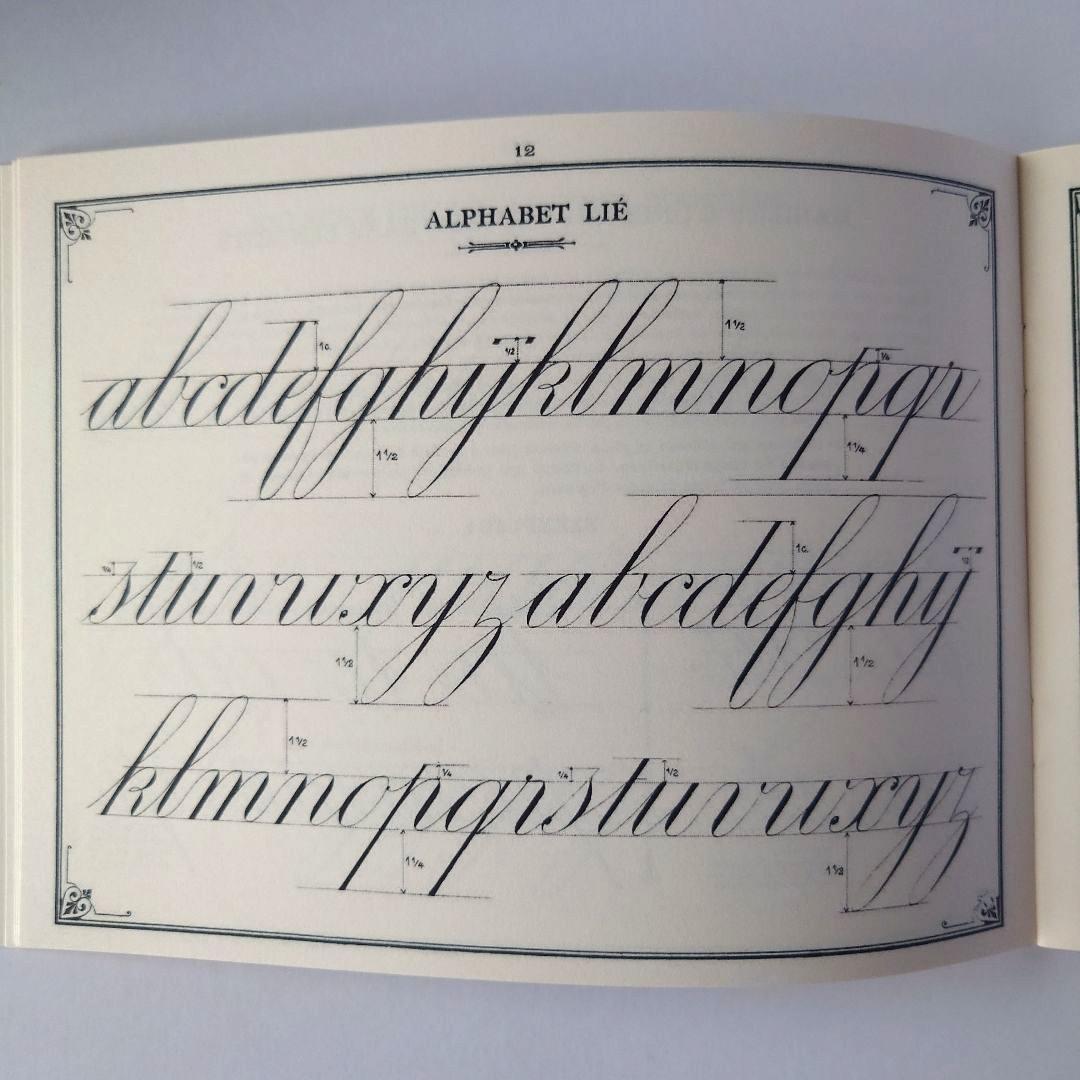 12
ALPHABET LIÉ
1c. 1/2 1 1/2 1/4
abcdefghijklmnopqr
1 1/2 1 1/4
1/4 1/2 1c. 1/2
stuvwxyz abcdefghij
1 1/2 1 1/2
1 1/2 1/4 1/4 1/2
klmnopqrstuvwxyz
1 1/4 1 1/2